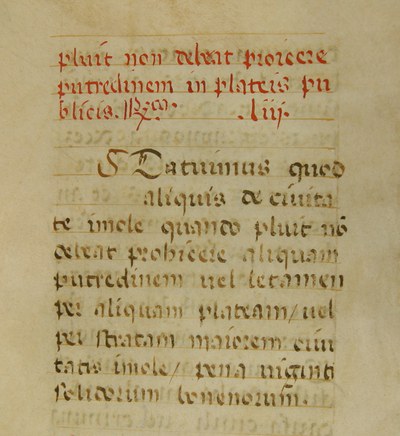 pluit non debeat proicere
putredinem in plateis pu
blicis. R̃cȃ. .liij.
STatuimus quod
aliquis de ciuita
te imole quando pluit nõ
debeat prohicere aliquam
putredinem uel letamen
per aliquam plateam/uel
per stratam maiorem ciui
tatis imole/ pena uiginti
solidorum bononorum.